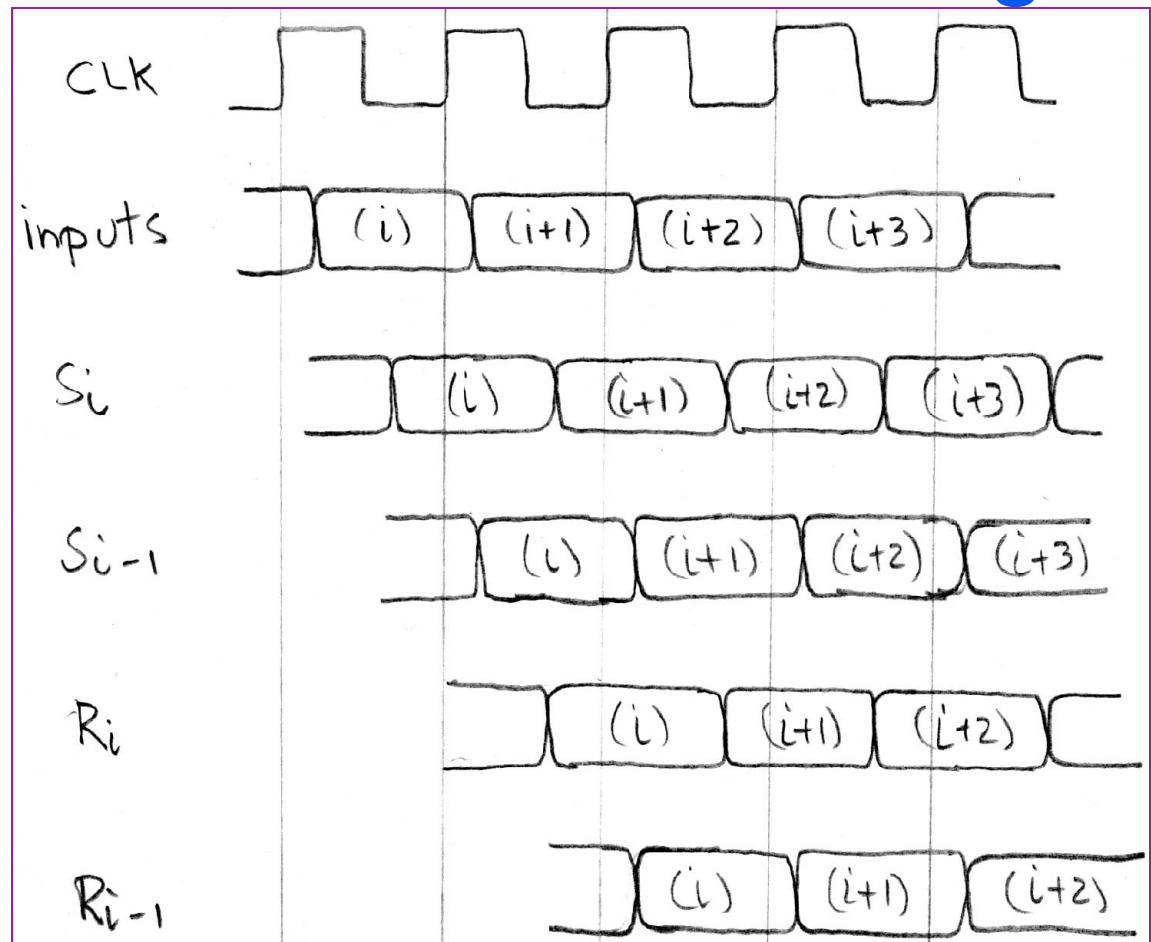 CLK
inputs (i) (i+1) (i+2) (i+3)
Si (i) (i+1) (i+2) (i+3)
Si-1 (i) (i+1) (i+2) (i+3)
Ri (i) (i+1) (i+2)
Ri-1 (i) (i+1) (i+2)